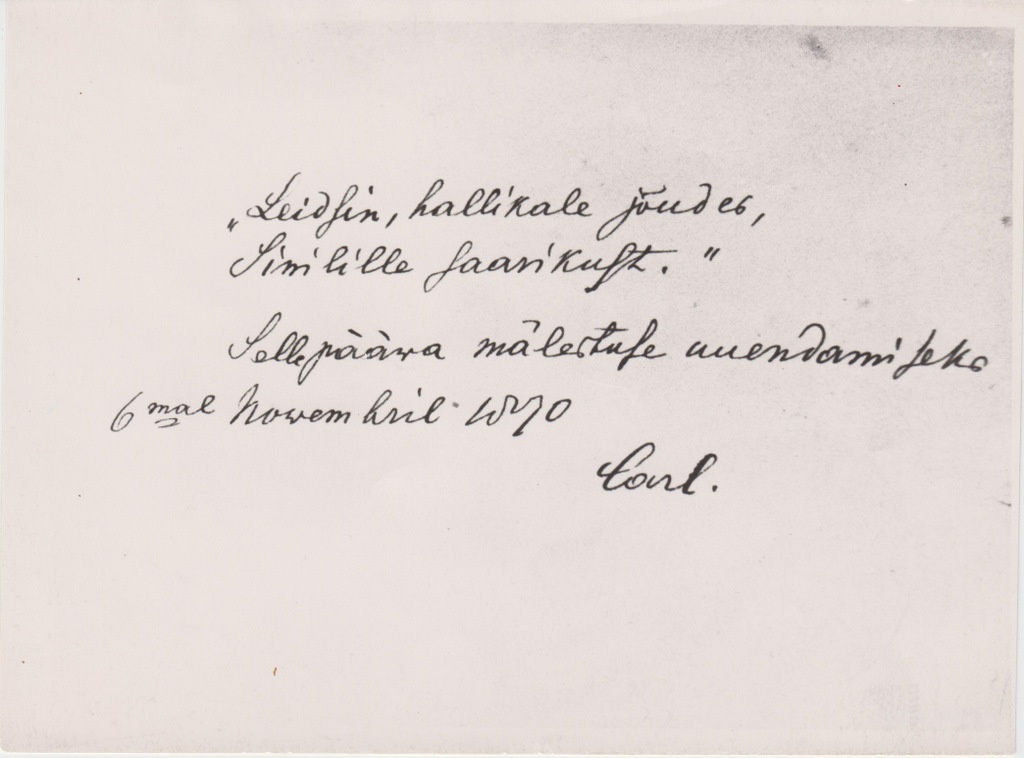 „Leidsin, hallikale jõudes,
Sinilille saarikust."
Selle pääwa mälestuse uuendamiseks
6mal Nowembril 1870
Carl.